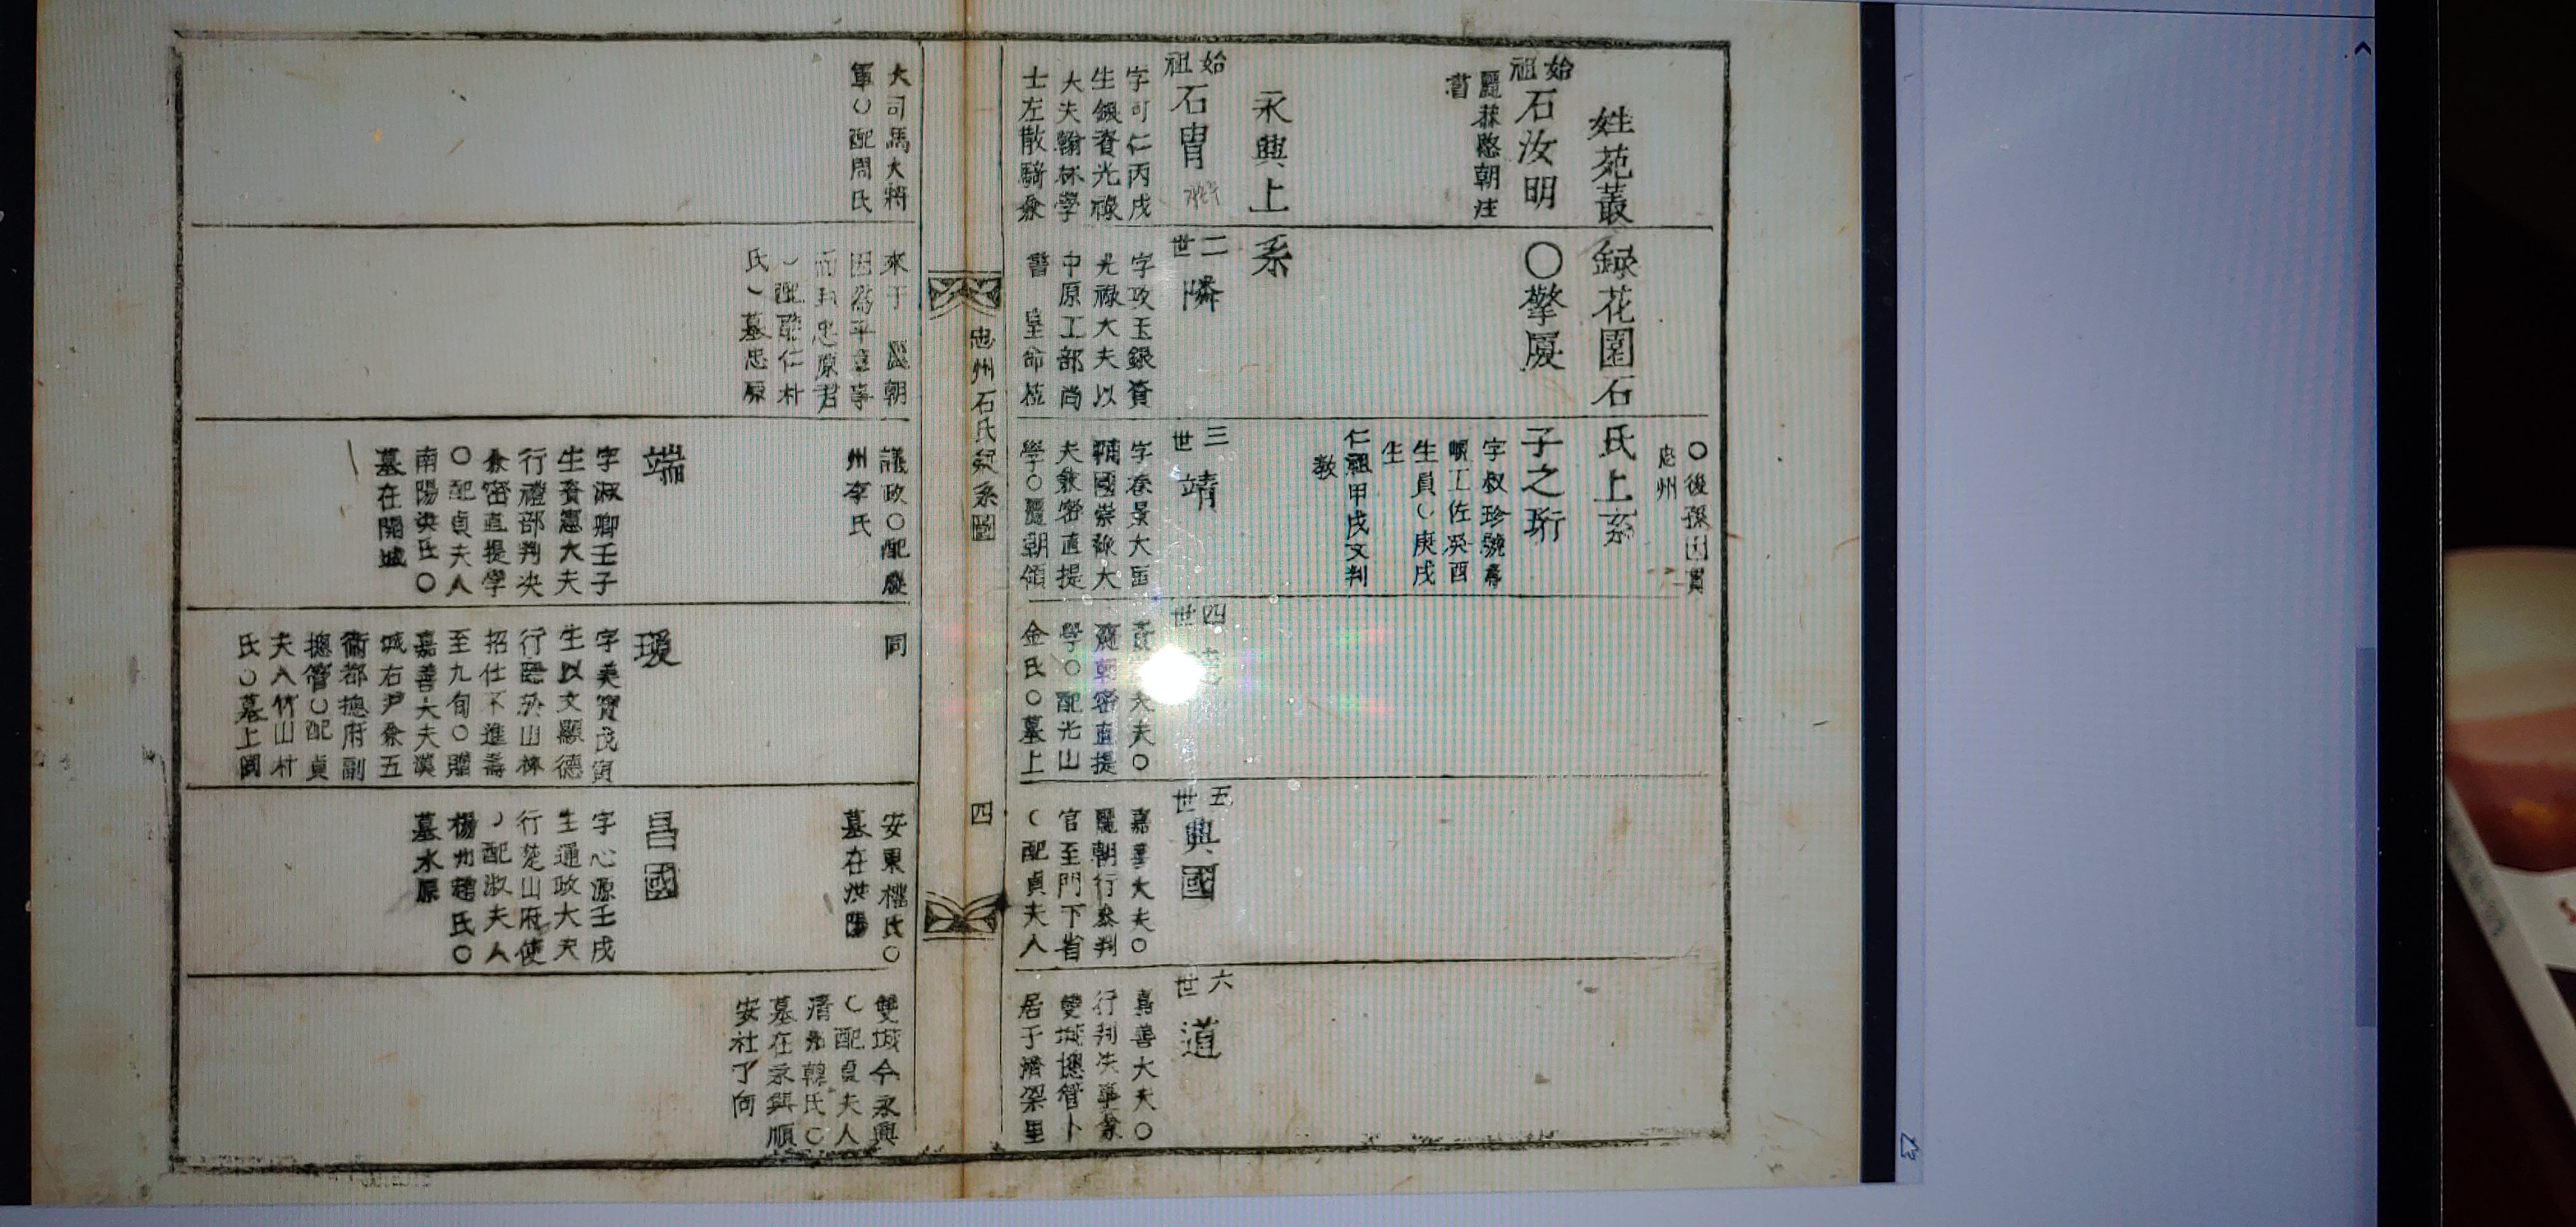 姓苑叢錄花園石氏上系
○後孫因貫
忠州
始祖
石汝明
書
○擎廈
子之珩
字叔珍號
峴工佐癸酉
生員○庚戌
生
仁祖甲戌文判
敎
永興上系
始祖
石胄
字可仁丙戌
生銀靑光祿
大夫翰林學
士左散騎兼
大司馬大將
軍○配周氏
二世
隣
字攻玉銀靑
光祿大夫以
中原工部尚
書 皇命
來于 麗朝
因爲平章事
而封忠原君
○配 仁朴
氏○墓忠原
三世
靖
字春景大匡
輔國崇祿大
夫兼密直提
學○麗朝領
議政○配慶
州李氏
端
字淑卿壬子
生資憲大夫
行禮部判決
兼密直提學
○配貞夫人
南陽洪氏○
墓在開城
四世
大夫○
麗朝密直提
學○配光山
金氏○墓上
同
瑗
字美寶戊寅
生以文顯德
行 於山林
招仕不進壽
至九旬○贈
嘉善大夫漢
城右尹兼五
衛都摠府副
摠管○配貞
夫人竹山朴
氏○墓上同
五世
興國
嘉善大夫○
麗朝行參判
官至門下省
○配貞夫人
安東權氏○
墓在洪陽
昌國
字心源壬戌
生通政大夫
行楚山府使
○配淑夫人
楊州趙氏○
墓水原
六世
道
嘉善大夫○
行判決事兼
雙城摠管卜
居于 梁里
雙城今永興
○配貞夫人
淸州韓氏○
墓在永興順
安社丁向
忠州石氏 系圖
四